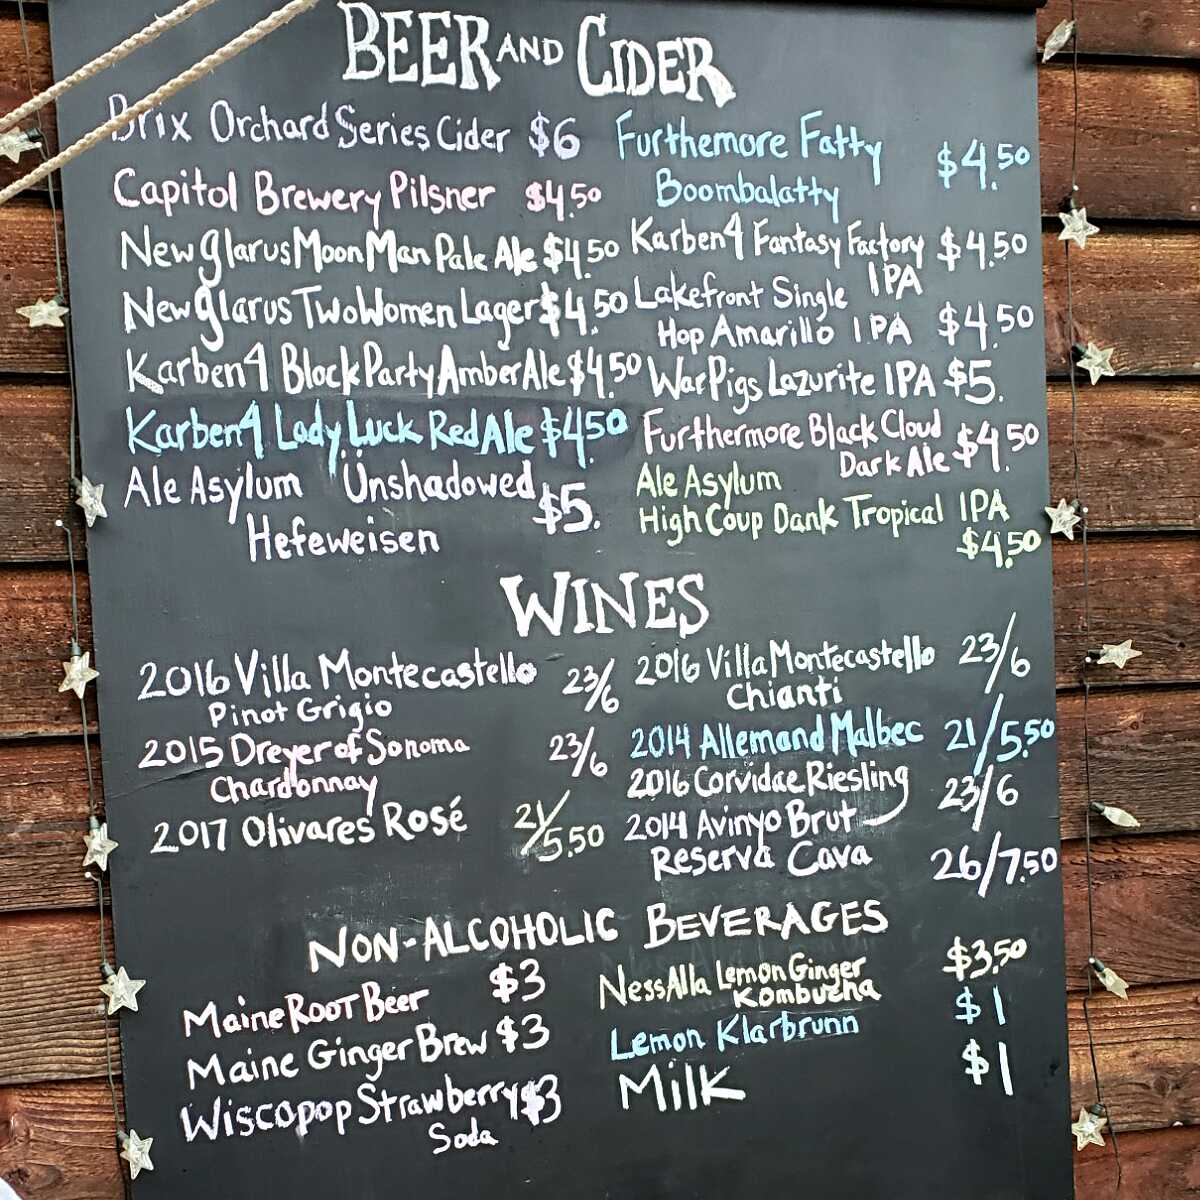 BEER AND CIDER
Brix Orchard Series Cider $6
Capitol Brewery Pilsner $4.50
New Glarus Moon Man Pale Ale $4.50
New Glarus Two Women Lager $4.50
Karben4 Block Party Amber Ale $4.50
Karben4 Lady Luck Red Ale $4.50
Ale Asylum Ünshadowed
Hefeweisen $5.
Furthemore Fatty
Boombalatty $4.50
Karben4 Fantasy Factory
IPA $4.50
Lakefront Single
Hop Amarillo IPA $4.50
War Pigs Lazurite IPA $5.
Furthermore Black Cloud
Dark Ale $4.50
Ale Asylum
High Coup Dank Tropical IPA
$4.50
WINES
2016 Villa Montecastello 23/6
Pinot Grigio
2015 Dreyer of Sonoma 23/6
Chardonnay
2017 Olivares Rosé 21/5.50
2016 Villa Montecastello 23/6
Chianti
2014 Allemand Malbec 21/5.50
2016 Corvidae Riesling 23/6
2014 Avinyo Brut
Reserva Cava 26/7.50
NON-ALCOHOLIC BEVERAGES
Maine Root Beer $3
Maine Ginger Brew $3
Wiscopop Strawberry $3
Soda
NessAlla Lemon Ginger $3.50
Kombucha
Lemon Klarbrunn $1
Milk $1